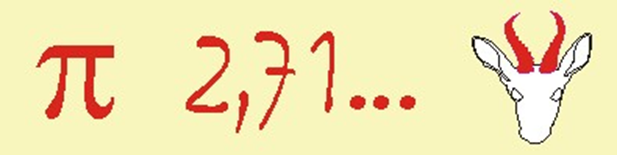 π 2,71...